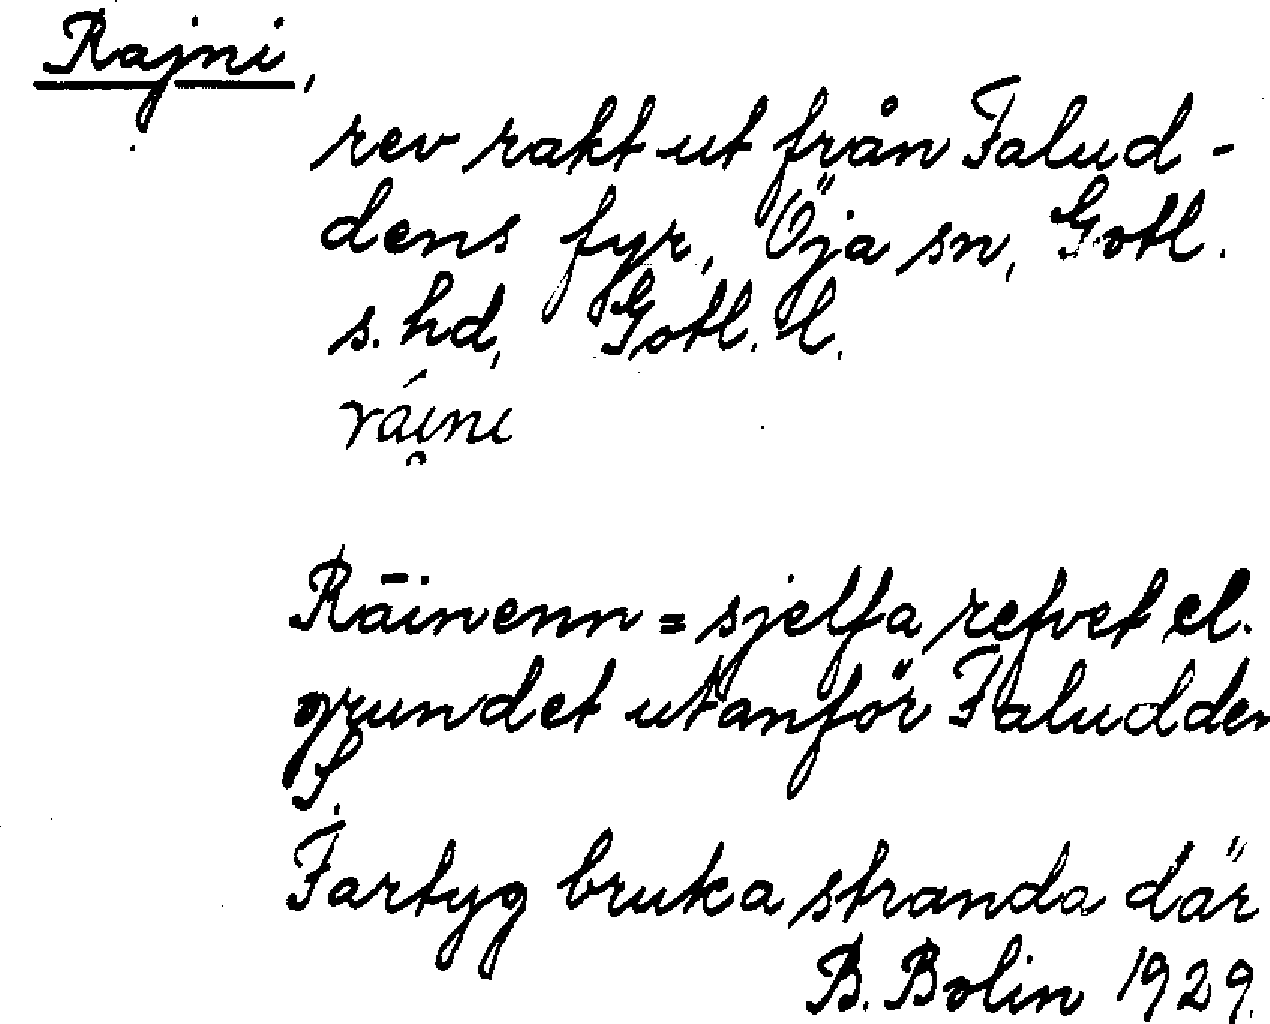 Rajni,
rev rakt ut från Falud-
dens fyr, Öja sn, Gotl.
s. hd, Gotl. l.
rái̯ni
Rāinenn = sjelfa refvet el.
grundet utanför Faludden
S.
Fartyg bruka stranda där
B. Bolin 1929.